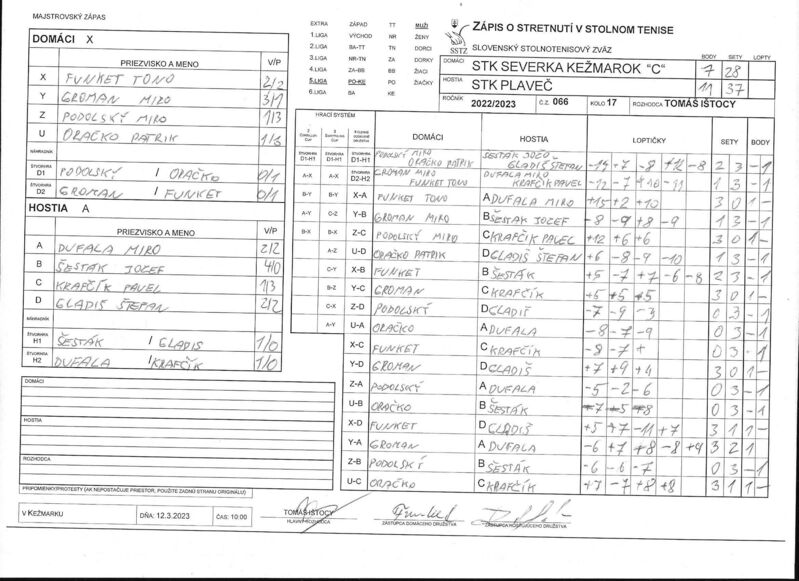 MAJSTROVSKÝ ZÁPAS
DOMÁCI X
PRIEZVISKO A MENO V/P
X FUNKET TONO 2/2
Y GROMAN MIRO 3/1
Z PODOLSKÝ MIRO 1/3
U ORAČKO PATRIK 1/3
NÁHRADNÍK
ŠTVORHRA D1 PODOLSKÝ / ORAČKO 0/1
ŠTVORHRA D2 GROMAN / FUNKET 0/1
HOSTIA A
PRIEZVISKO A MENO V/P
A DUFALA MIRO 2/2
B ŠESTÁK JOZEF 4/0
C KRAFČÍK PAVEL 1/3
D GLADIŠ ŠTEFAN 2/2
NÁHRADNÍK
ŠTVORHRA H1 ŠESTÁK / GLADIŠ 1/0
ŠTVORHRA H2 DUFALA / KRAFČÍK 1/0
DOMÁCI
HOSTIA
ROZHODCA
PRIPOMIENKY/PROTESTY (AK NEPOSTAČUJE PRIESTOR, POUŽITE ZADNÚ STRANU ORIGINÁLU)
V KEŽMARKU DŇA: 12.3.2023 ČAS: 10:00
EXTRA ZÁPAD TT MUŽI
1.LIGA VÝCHOD NR ŽENY
2.LIGA BA-TT TN DORCI
3.LIGA NR-TN ZA DORKY
4.LIGA ZA-BB BB ŽIACI
5.LIGA PO-KE PO ŽIAČKY
6.LIGA BA KE
SSTZ
ZÁPIS O STRETNUTÍ V STOLNOM TENISE
SLOVENSKÝ STOLNOTENISOVÝ ZVÄZ
BODY SETY LOPTY
DOMÁCI STK SEVERKA KEŽMAROK "C" 7 28
HOSTIA STK PLAVEČ 11 37
ROČNÍK 2022/2023 Č.Z. 066 KOLO 17 ROZHODCA TOMÁŠ IŠTOCY
HRACÍ SYSTÉM
DOMÁCI HOSTIA LOPTIČKY SETY BODY
ŠTVORHRA D1-H1 ŠTVORHRA D1-H1 ŠTVORHRA D1-H1 PODOLSKÝ MIRO ORAČKO PATRIK ŠESTÁK JOŽO GLADIŠ ŠTEFAN -14 +7 -8 +12 -8 2 3 -1
A-X A-X ŠTVORHRA D2-H2 GROMAN MIRO FUNKET TONO DUFALA MIRO KRAFČÍK PAVEL -12 -7 +10 -11 1 3 -1
B-Y B-Y X-A FUNKET TONO A DUFALA MIRO +15 +2 +10 3 0 1-
A-Y C-Z Y-B GROMAN MIRO B ŠESTÁK JOZEF -8 -9 +8 -9 1 3 -1
B-X B-X Z-C PODOLSKÝ MIRO C KRAFČÍK PAVEL +12 +6 +6 3 0 1-
A-Z U-D ORAČKO PATRIK D GLADIŠ ŠTEFAN +6 -8 -9 -10 1 3 -1
C-Y X-B FUNKET B ŠESTÁK +5 -7 +7 -6 -8 2 3 -1
B-Z Y-C GROMAN C KRAFČÍK +5 +5 +5 3 0 1-
C-X Z-D PODOLSKÝ D GLADIŠ -7 -9 -3 0 3 -1
A-Y U-A ORAČKO A DUFALA -8 -7 -9 0 3 -1
X-C FUNKET C KRAFČÍK -8 -7 0 3 -1
Y-D GROMAN D GLADIŠ +7 +9 +4 3 0 1-
Z-A PODOLSKÝ A DUFALA -5 -2 -6 0 3 -1
U-B ORAČKO B ŠESTÁK -7 -5 -8 0 3 -1
X-D FUNKET D GLADIŠ +5 +7 -11 +7 3 1 1-
Y-A GROMAN A DUFALA -6 +7 +8 -8 +9 3 2 1
Z-B PODOLSKÝ B ŠESTÁK -6 -6 -7 0 3 -1
U-C ORAČKO C KRAFČÍK +7 -7 +8 +8 3 1 1-
TOMÁŠ IŠTOCY
HLAVNÝ ROZHODCA
ZÁSTUPCA DOMÁCEHO DRUŽSTVA
ZÁSTUPCA HOSŤUJÚCEHO DRUŽSTVA